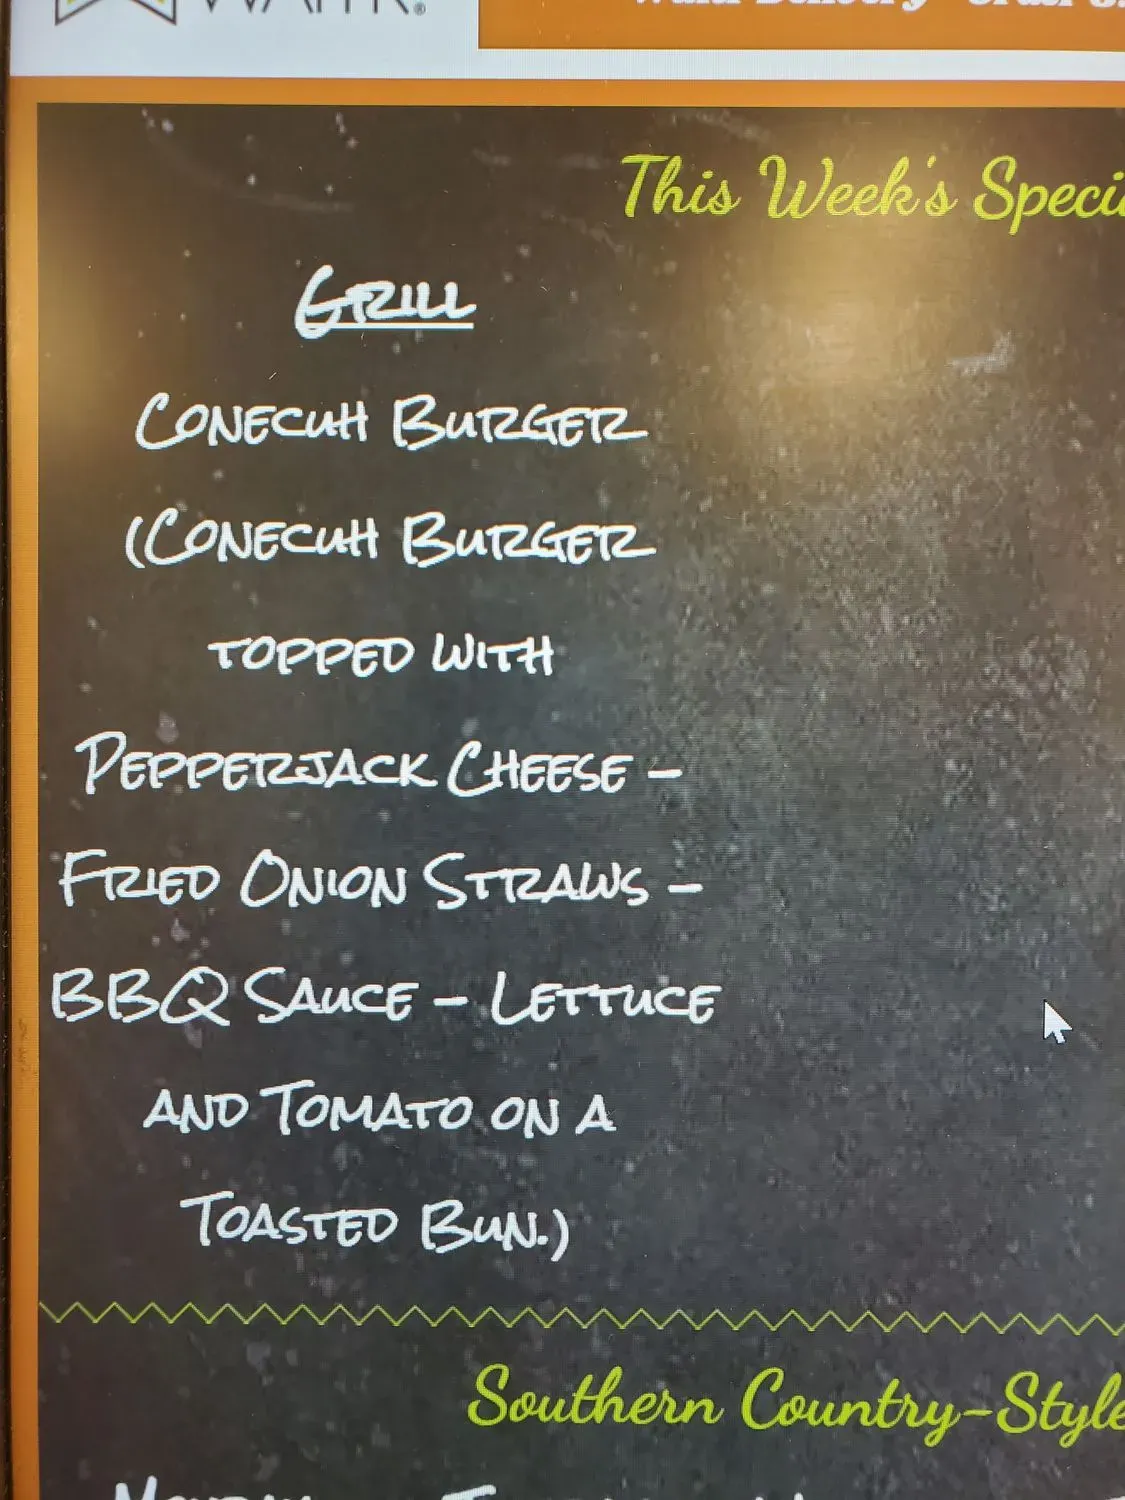 WAITR®
This Week's
GRILL
CONECUH BURGER
(CONECUH BURGER
TOPPED WITH
PEPPERJACK CHEESE –
FRIED ONION STRAWS –
BBQ SAUCE – LETTUCE
AND TOMATO ON A
TOASTED BUN.)
Southern Country-Style